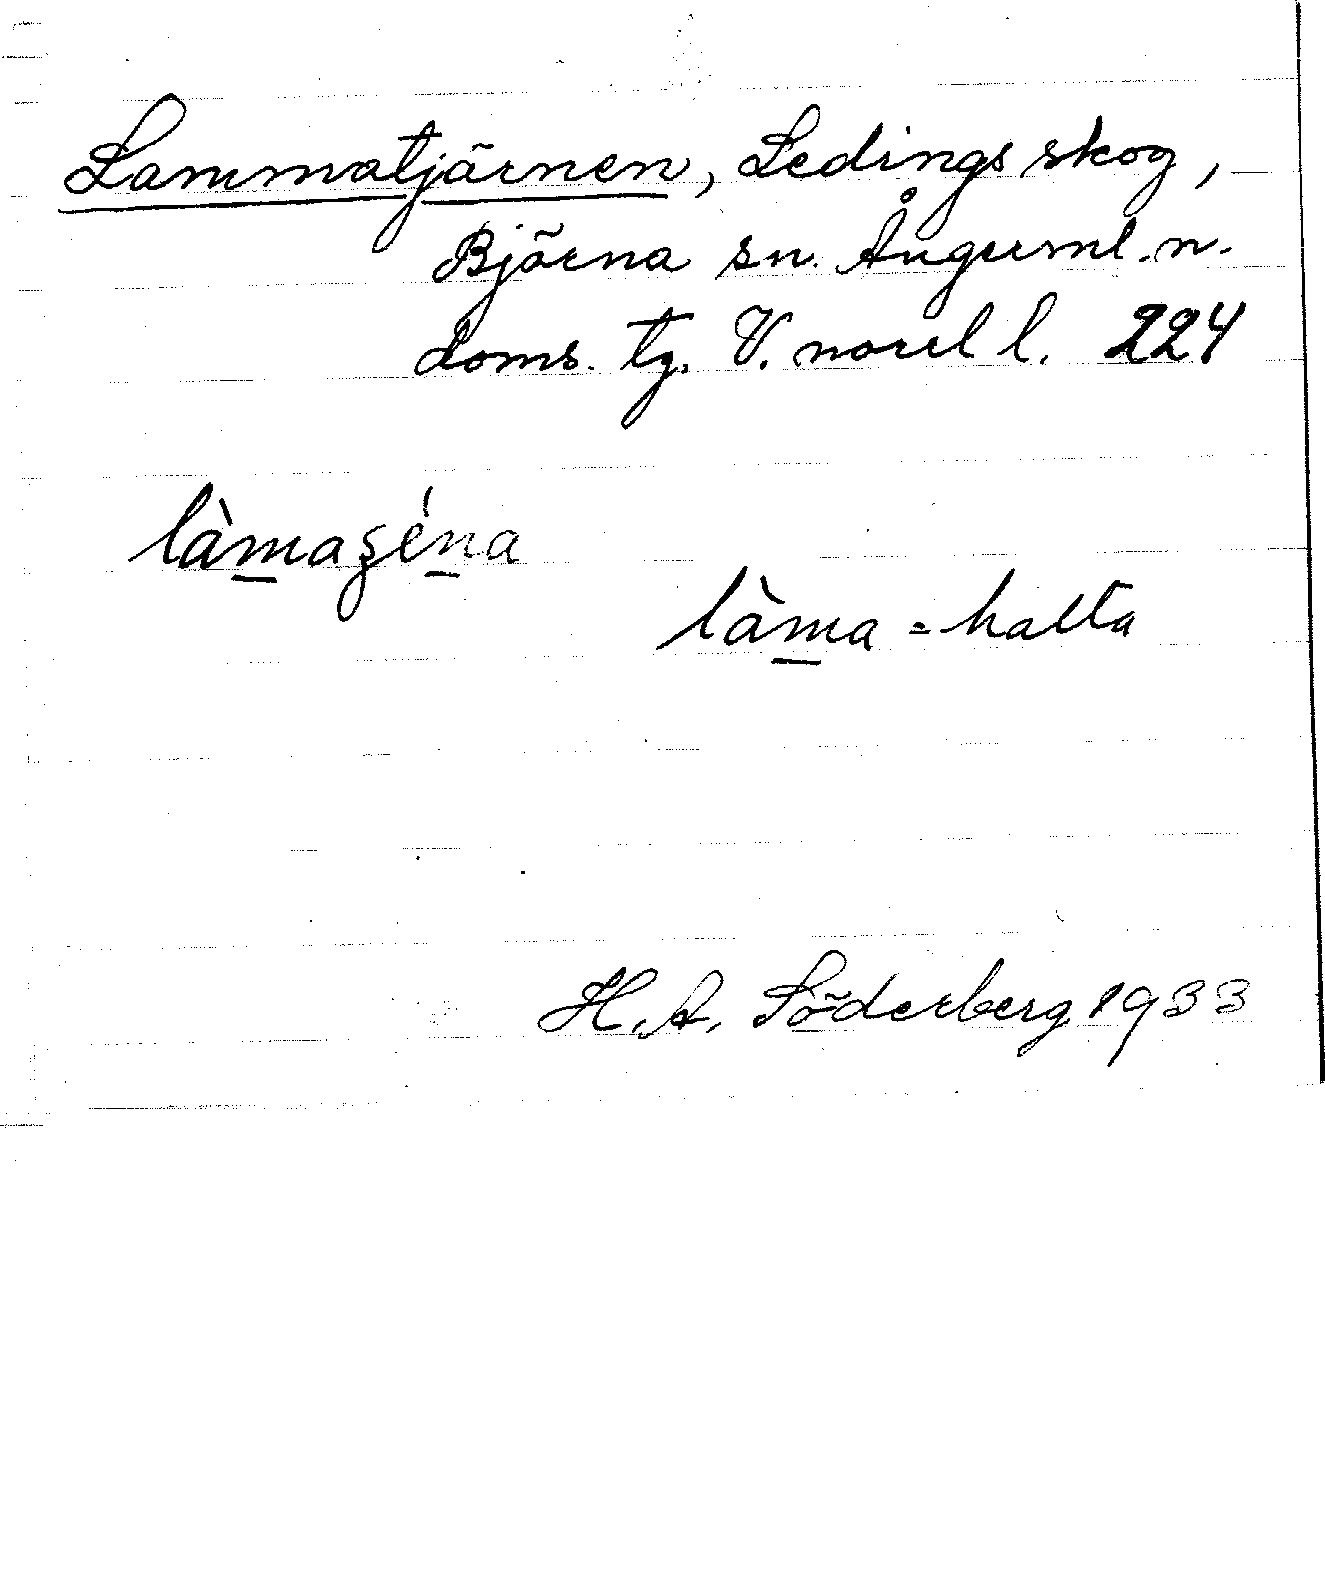 Lammatjärnen, Ledingsskog,
Björna sn. Ångerml. n.
doms. tg. V. norrl l. 224
làmaʂéna
làma = halta
H. A. Söderberg 1933